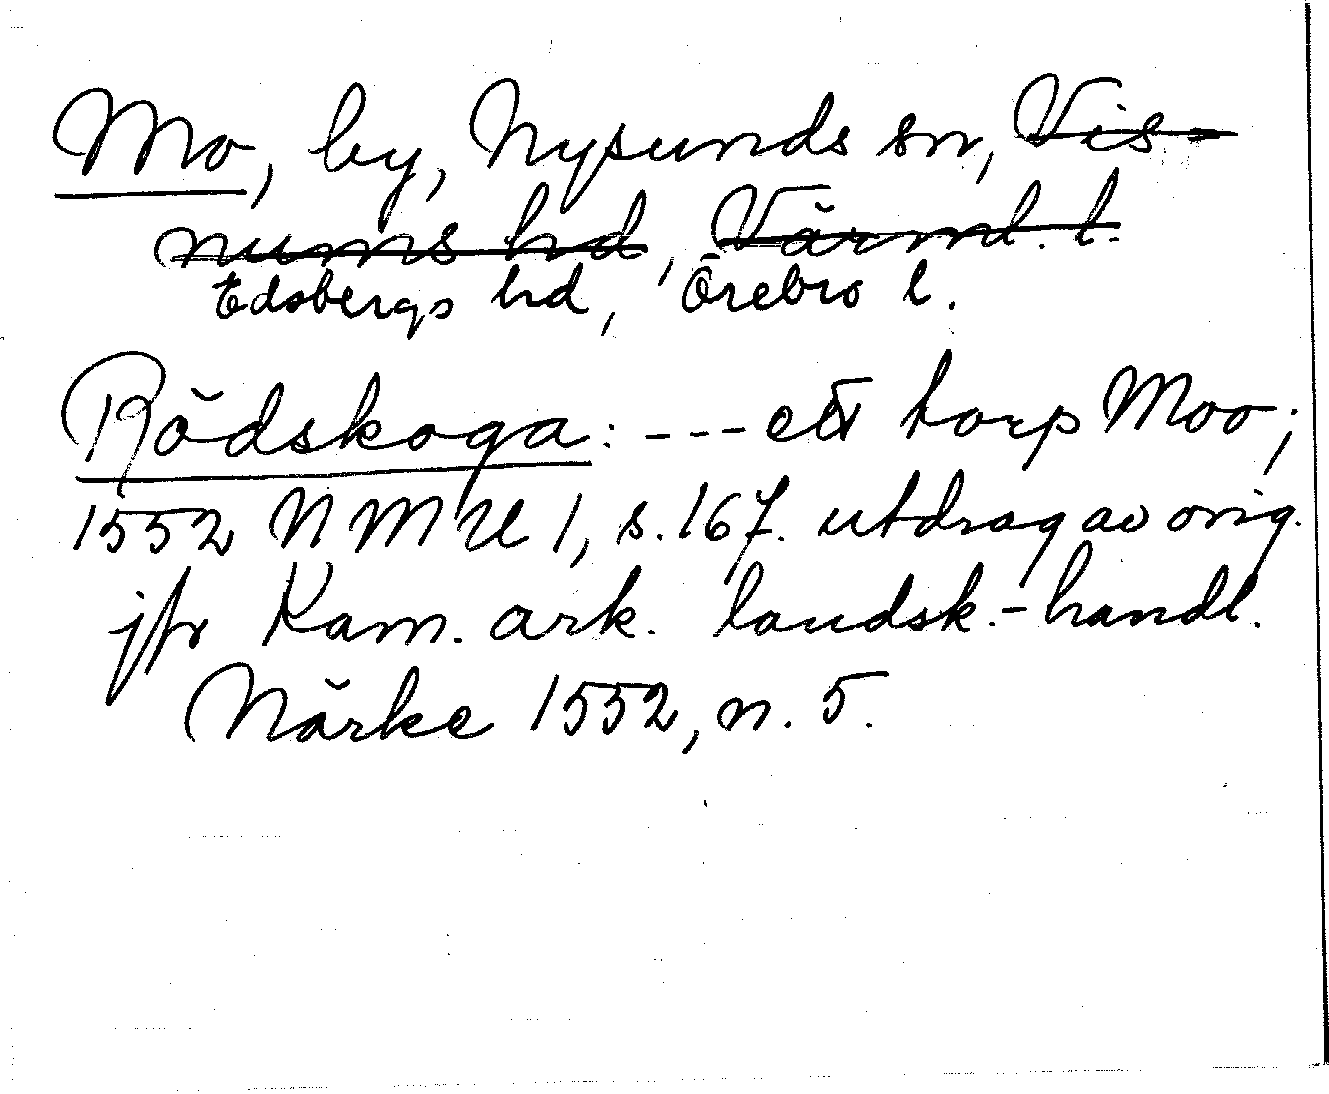 Mo, by, Nysunds sn, Vis-
nums hd, Värml. l.
Edsbergs hd, Örebro l.
Rödskoga: - - - ett torp Moo;
1552 NMU 1, s. 167. utdrag av orig.
jfr Kam. ark. landsk.-handl.
Närke 1552, n. 5.